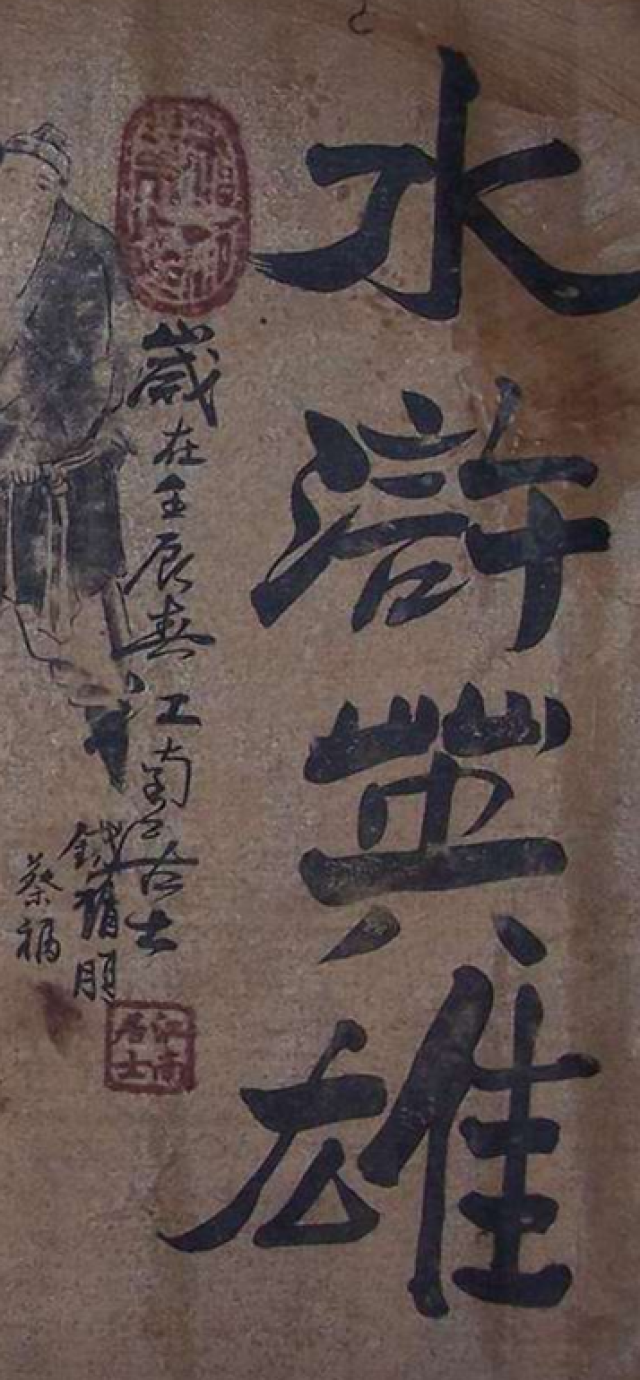 水滸英雄
歲在壬辰春江南居士
蔡福
江南居士